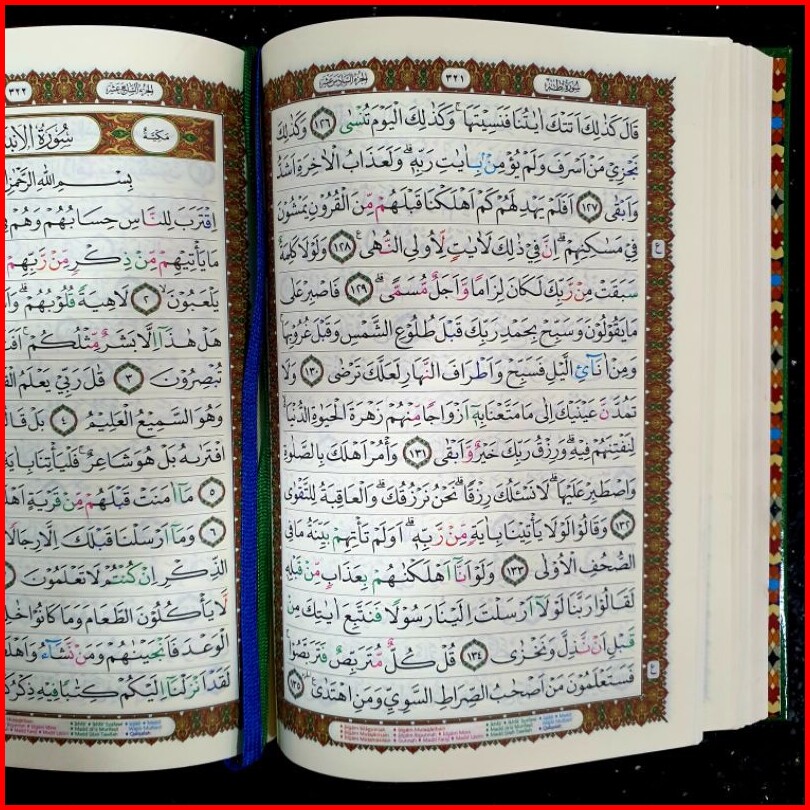 سُورَةُ طٰهٰ
٣٢١
الجزء السادس عشر
قَالَ كَذٰلِكَ اَتَتْكَ اٰيٰتُنَا فَنَسِيْتَهَاۚ وَكَذٰلِكَ الْيَوْمَ تُنْسٰى ﴿١٢٦﴾ وَكَذٰلِكَ
نَجْزِيْ مَنْ اَسْرَفَ وَلَمْ يُؤْمِنْۢ بِاٰيٰتِ رَبِّهٖۗ وَلَعَذَابُ الْاٰخِرَةِ اَشَدُّ
وَاَبْقٰى ﴿١٢٧﴾ اَفَلَمْ يَهْدِ لَهُمْ كَمْ اَهْلَكْنَا قَبْلَهُمْ مِّنَ الْقُرُوْنِ يَمْشُوْنَ
فِيْ مَسٰكِنِهِمْۗ اِنَّ فِيْ ذٰلِكَ لَاٰيٰتٍ لِّاُولِى النُّهٰىۚ ﴿١٢٨﴾ وَلَوْلَا كَلِمَةٌ
سَبَقَتْ مِنْ رَّبِّكَ لَكَانَ لِزَامًا وَّاَجَلٌ مُّسَمًّىۗ ﴿١٢٩﴾ فَاصْبِرْ عَلٰى
مَا يَقُوْلُوْنَ وَسَبِّحْ بِحَمْدِ رَبِّكَ قَبْلَ طُلُوْعِ الشَّمْسِ وَقَبْلَ غُرُوْبِهَاۚ
وَمِنْ اٰنَاۤئِ الَّيْلِ فَسَبِّحْ وَاَطْرَافَ النَّهَارِ لَعَلَّكَ تَرْضٰى ﴿١٣٠﴾ وَلَا
تَمُدَّنَّ عَيْنَيْكَ اِلٰى مَا مَتَّعْنَا بِهٖٓ اَزْوَاجًا مِّنْهُمْ زَهْرَةَ الْحَيٰوةِ الدُّنْيَا
لِنَفْتِنَهُمْ فِيْهِۗ وَرِزْقُ رَبِّكَ خَيْرٌ وَّاَبْقٰى ﴿١٣١﴾ وَأْمُرْ اَهْلَكَ بِالصَّلٰوةِ
وَاصْطَبِرْ عَلَيْهَاۗ لَا نَسْـَٔلُكَ رِزْقًاۗ نَحْنُ نَرْزُقُكَۗ وَالْعَاقِبَةُ لِلتَّقْوٰى
﴿١٣٢﴾ وَقَالُوْا لَوْلَا يَأْتِيْنَا بِاٰيَةٍ مِّنْ رَّبِّهٖۗ اَوَلَمْ تَأْتِهِمْ بَيِّنَةُ مَا فِى
الصُّحُفِ الْاُوْلٰى ﴿١٣٣﴾ وَلَوْ اَنَّآ اَهْلَكْنٰهُمْ بِعَذَابٍ مِّنْ قَبْلِهٖ
لَقَالُوْا رَبَّنَا لَوْلَآ اَرْسَلْتَ اِلَيْنَا رَسُوْلًا فَنَتَّبِعَ اٰيٰتِكَ مِنْ
قَبْلِ اَنْ نَّذِلَّ وَنَخْزٰى ﴿١٣٤﴾ قُلْ كُلٌّ مُّتَرَبِّصٌ فَتَرَبَّصُوْاۚ
فَسَتَعْلَمُوْنَ مَنْ اَصْحٰبُ الصِّرَاطِ السَّوِيِّ وَمَنِ اهْتَدٰى ﴿١٣٥﴾
ع
ع
الجزء السابع عشر
٣٢٢
مَكِّيَّةٌ
سُوْرَةُ الْاَنْۢبِ
بِسْمِ اللّٰهِ الرَّحْمٰنِ
اِقْتَرَبَ لِلنَّاسِ حِسَابُهُمْ وَهُمْ فِيْ
مَا يَأْتِيْهِمْ مِّنْ ذِكْرٍ مِّنْ رَّبِّهِمْ
يَلْعَبُوْنَۙ ﴿٢﴾ لَاهِيَةً قُلُوْبُهُمْۗ
هَلْ هٰذَآ اِلَّا بَشَرٌ مِّثْلُكُمْۚ
تُبْصِرُوْنَ ﴿٣﴾ قٰلَ رَبِّيْ يَعْلَمُ
وَهُوَ السَّمِيْعُ الْعَلِيْمُ ﴿٤﴾ بَلْ قَالُ
افْتَرٰىهُ بَلْ هُوَ شَاعِرٌۚ فَلْيَأْتِنَا بِاٰيَةٍ
﴿٥﴾ مَآ اٰمَنَتْ قَبْلَهُمْ مِّنْ قَرْيَةٍ
﴿٦﴾ وَمَآ اَرْسَلْنَا قَبْلَكَ اِلَّا رِجَالًا
الذِّكْرِ اِنْ كُنْتُمْ لَا تَعْلَمُوْنَ
لَّا يَأْكُلُوْنَ الطَّعَامَ وَمَا كَانُوْا
الْوَعْدَ فَاَنْجَيْنٰهُمْ وَمَنْ نَّشَاۤءُ
لَقَدْ اَنْزَلْنَآ اِلَيْكُمْ كِتٰبًا فِيْهِ